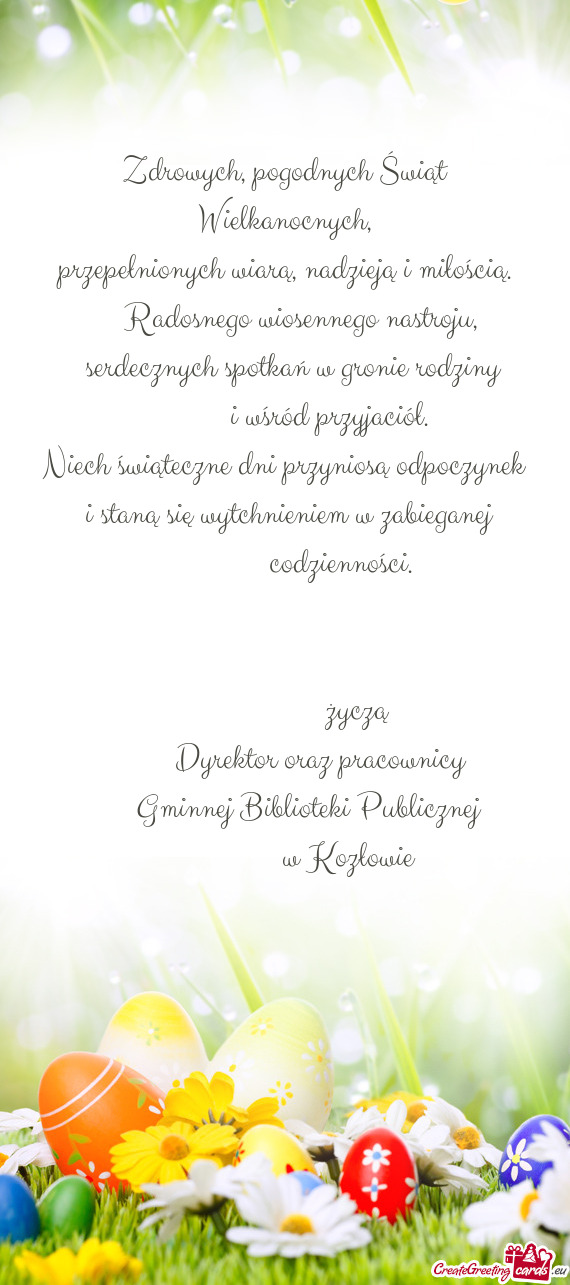 Zdrowych, pogodnych Świąt
Wielkanocnych,
przepełnionych wiarą, nadzieją i miłością.
Radosnego wiosennego nastroju,
serdecznych spotkań w gronie rodziny
i wśród przyjaciół.
Niech świąteczne dni przyniosą odpoczynek
i staną się wytchnieniem w zabieganej
codzienności.
życzą
Dyrektor oraz pracownicy
Gminnej Biblioteki Publicznej
w Kozłowie
CreateGreetingcards.eu